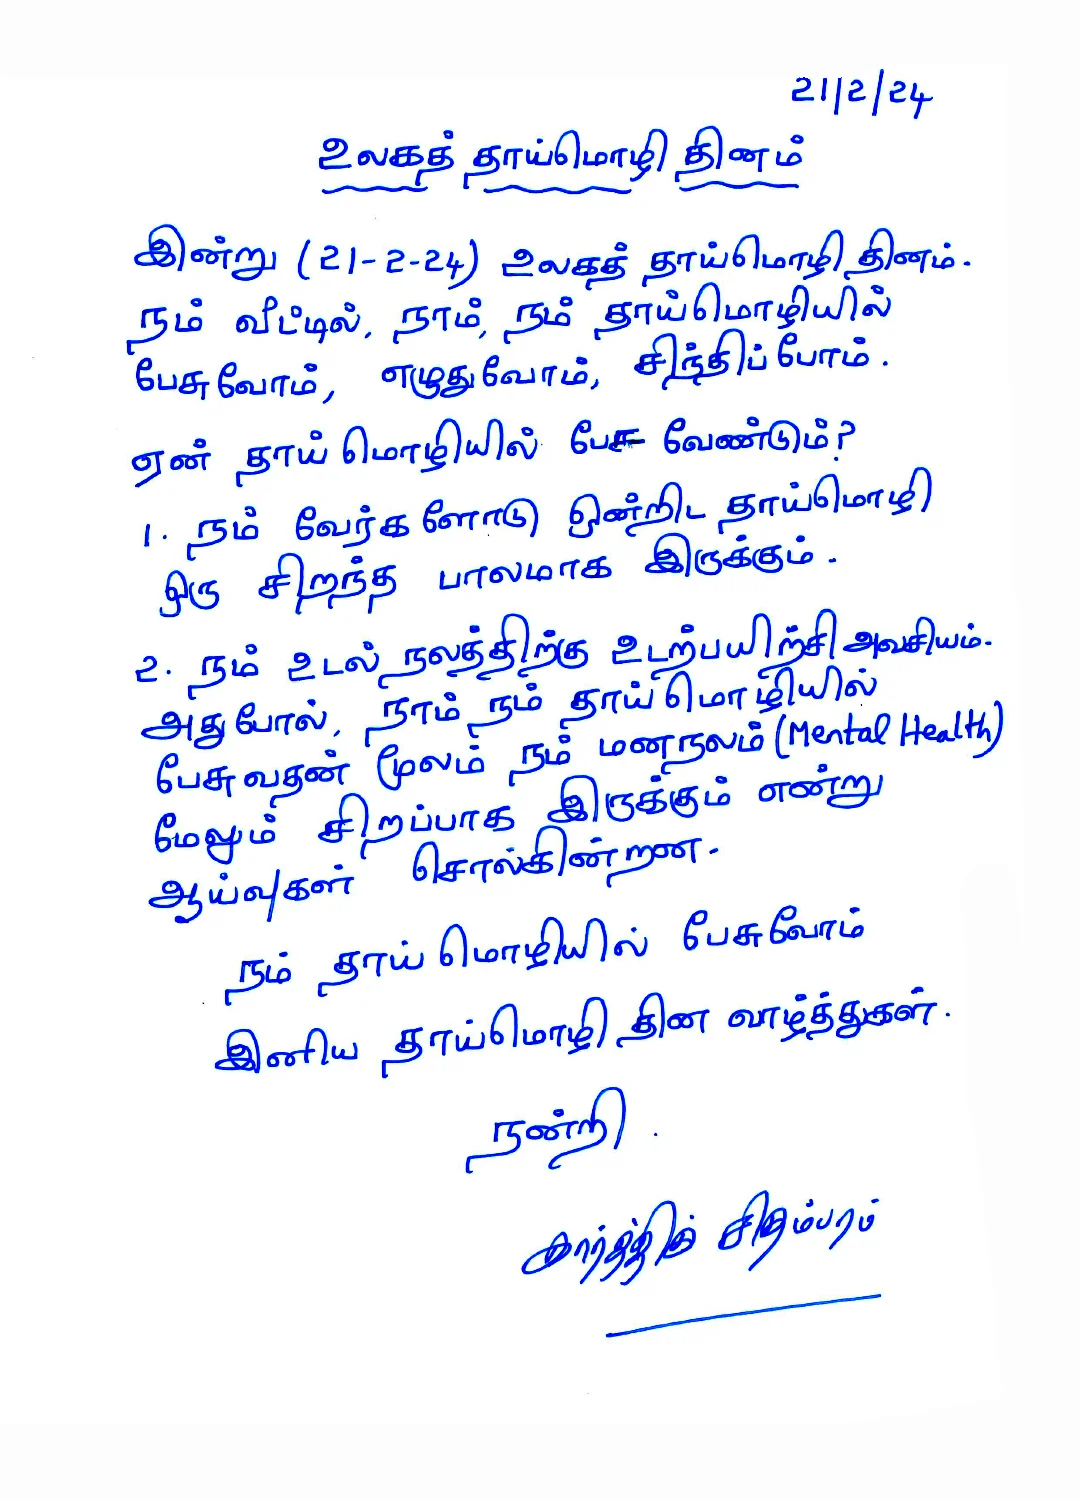 21/2/24
உலகத் தாய்மொழி தினம்
இன்று (21-2-24) உலகத் தாய்மொழி தினம்.
நம் வீட்டில், நாம், நம் தாய்மொழியில்
பேசுவோம், எழுதுவோம், சிந்திப்போம்.
ஏன் தாய்மொழியில் பேச வேண்டும்?
1. நம் வேர்களோடு ஒன்றிட தாய்மொழி
ஒரு சிறந்த பாலமாக இருக்கும்.
2. நம் உடல் நலத்திற்கு உடற்பயிற்சி அவசியம்.
அதுபோல், நாம் நம் தாய்மொழியில்
பேசுவதன் மூலம் நம் மனநலம் (Mental Health)
மேலும் சிறப்பாக இருக்கும் என்று
ஆய்வுகள் சொல்கின்றன.
நம் தாய்மொழியில் பேசுவோம்
இனிய தாய்மொழி தின வாழ்த்துகள்.
நன்றி.
கார்த்திக் சிதம்பரம்